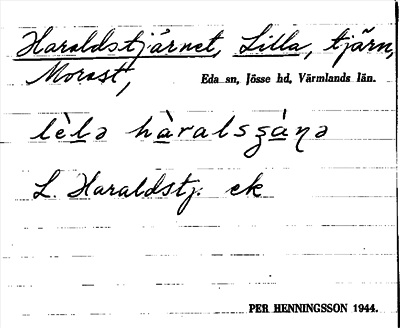 Haraldstjärnet, Lilla, tjärn,
Morast,
Eda sn, Jösse hd, Värmlands län.
lèlə hàralsʒáɳə
L. Haraldstj. ek
PER HENNINGSSON 1944.